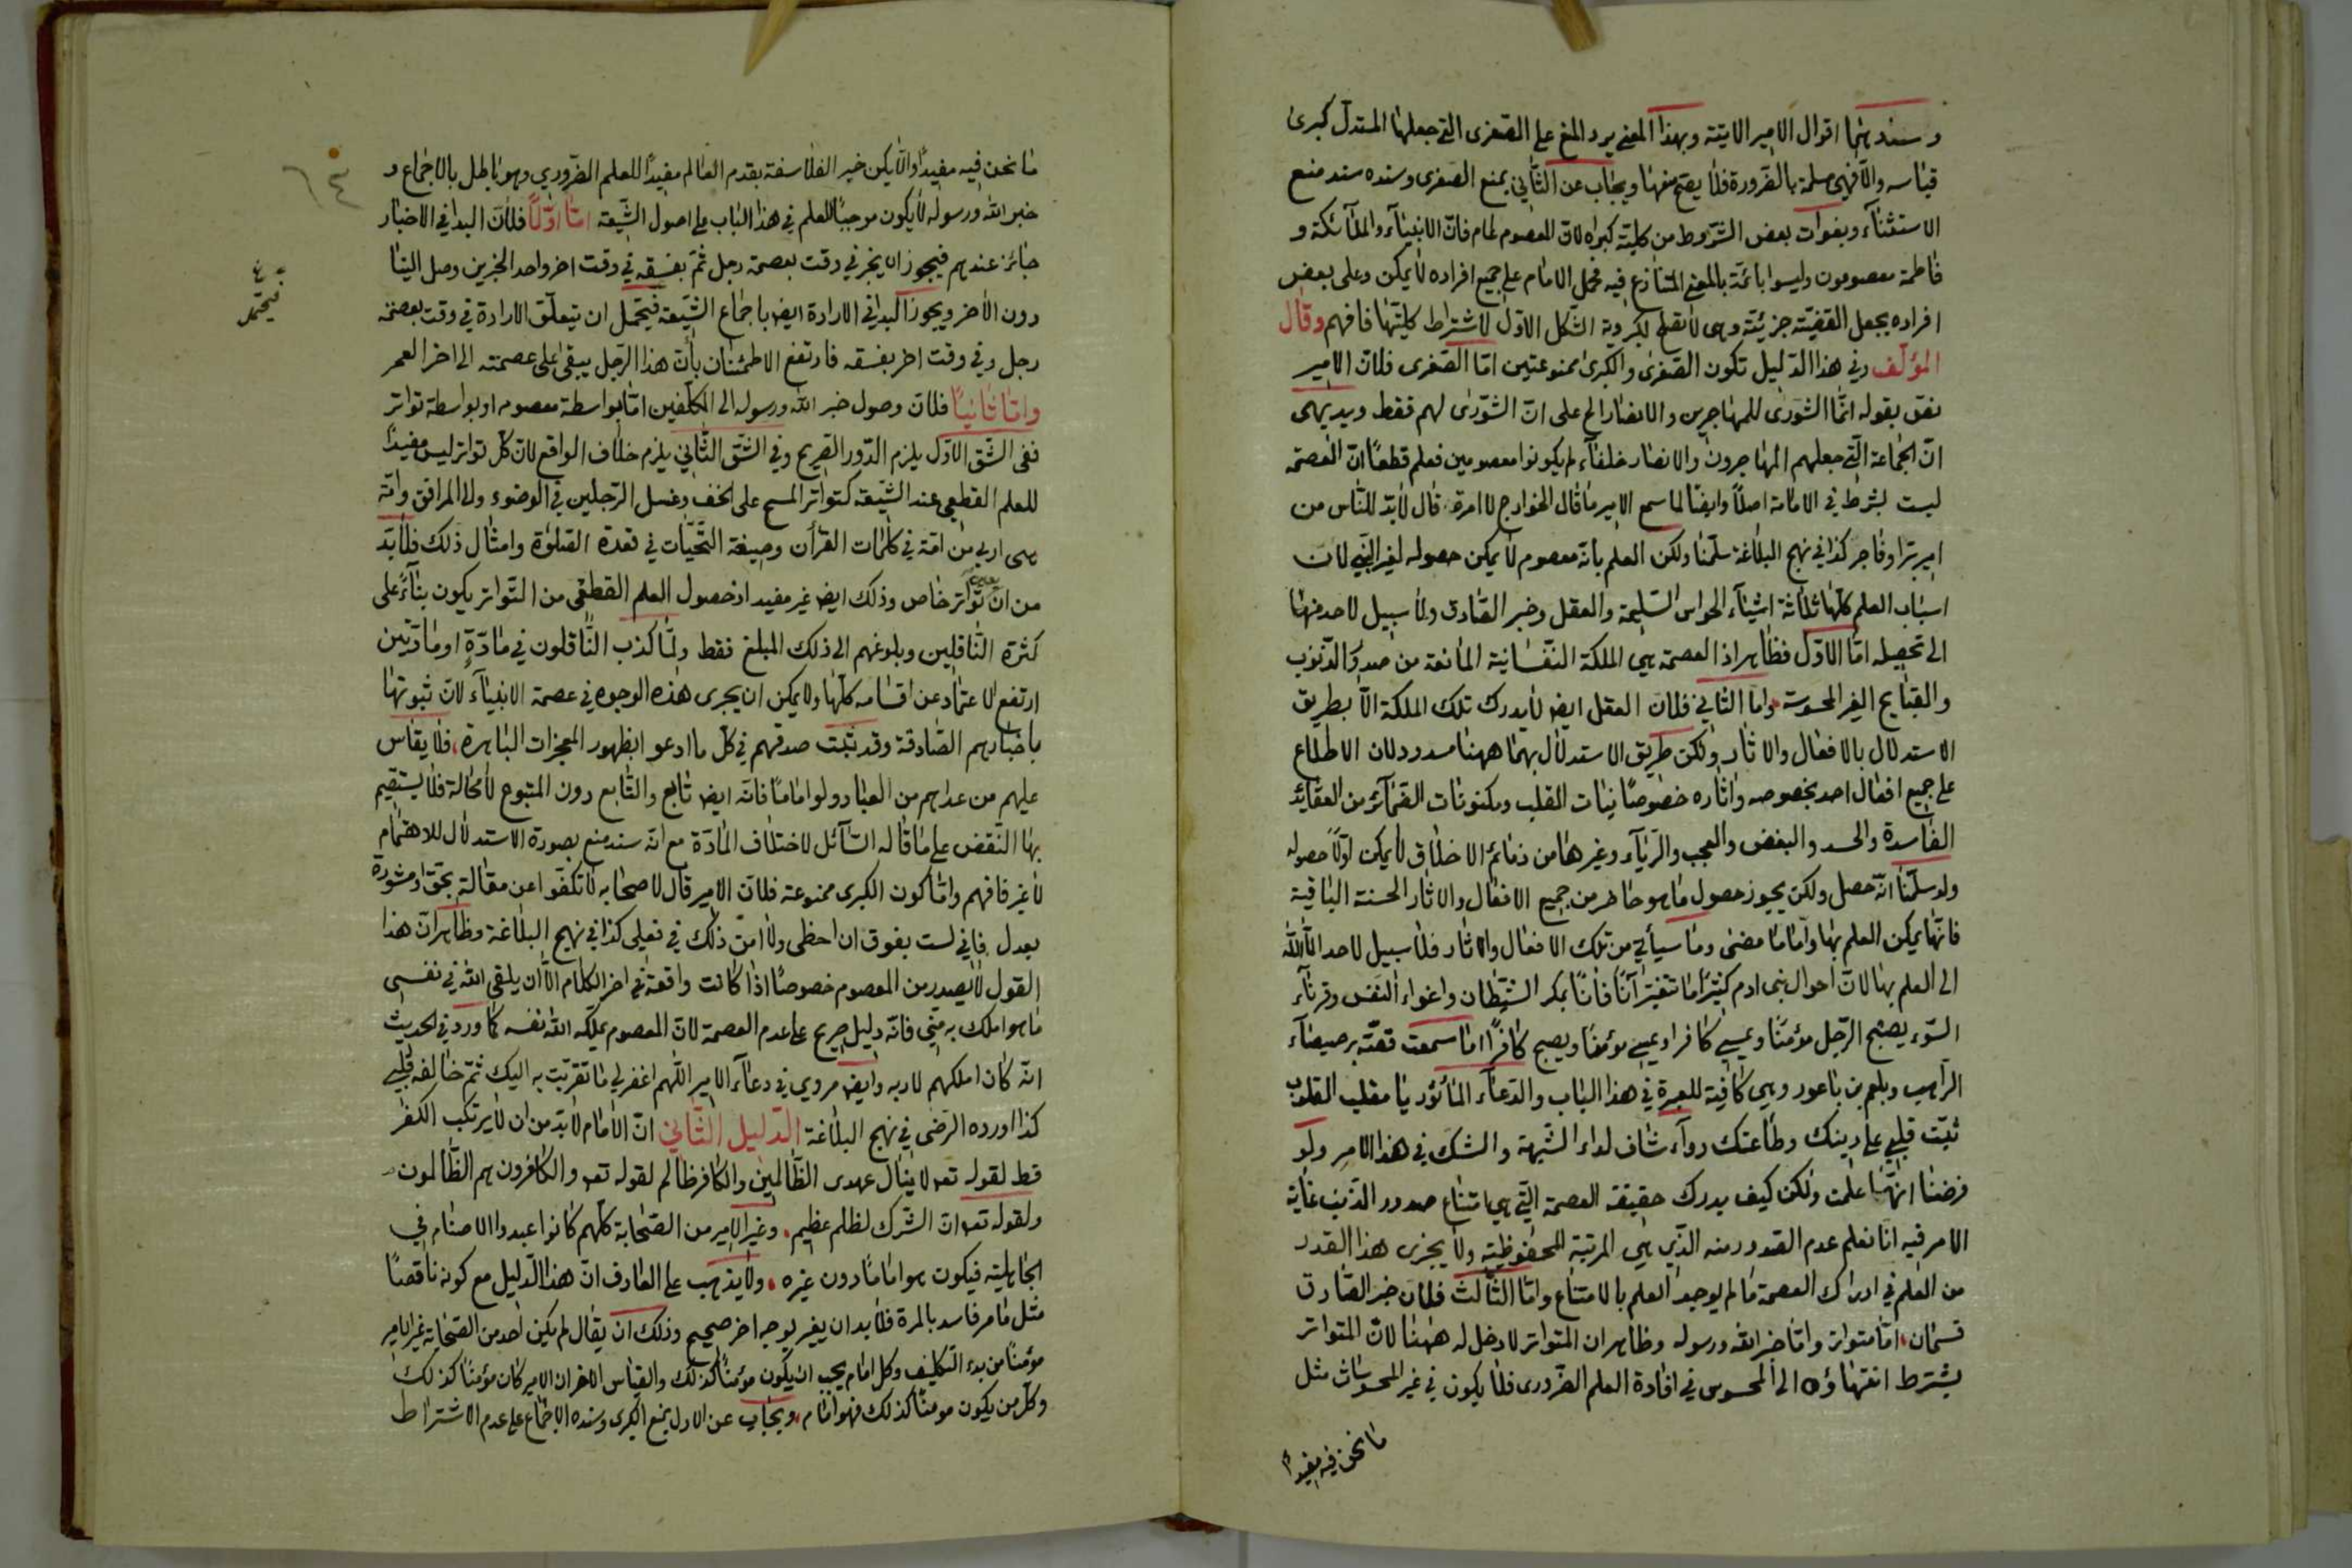 وسندهما اقوال الامير الاتية وبهذا المعنى يرد المنع على الصغرى التي جعلها المستدل كبرى
قياسه والا فهي مسلمة بالضرورة فلا يصح منعها ويجاب عن الثاني بمنع الصغرى وسنده سند منع
الاستثناء وبفوات بعض الشروط من كلية كبراه لان المعصوم عام فان الانبياء والملائكة و
فاطمة معصومون وليسوا بائمة بالمعنى المتنازع فيه فحمل الامام على جميع افراده لا يمكن وعلى بعض
افراده يجعل القضية جزئية وهى لا تصلح لكبروية الشكل الاول لاشتراط كليتها فافهم وقال
المؤلف وفي هذا الدليل تكون الصغرى والكبرى ممنوعتين اما الصغرى فلان الامير
نص بقوله انما الشورى للمهاجرين والانصار الخ على ان الشورى لهم فقط وبديهى
ان الجماعة التي جعلهم المهاجرون والانصار خلفاء لم يكونوا معصومين فعلم قطعا ان العصمة
ليست بشرط في الامامة اصلا وايضا لما سمع الامير ما قال الخوارج لا امرة قال لابد للناس من
امير برّ او فاجر كذا في نهج البلاغة سلمنا ولكن العلم بانه معصوم لا يمكن حصوله لغير النبي لان
اسباب العلم كلها ثلاثة اشياء الحواس السليمة والعقل وخبر الصادق ولا سبيل لاحد منها
الى تحصيله اما الاول فظاهر اذ العصمة هي الملكة النفسانية المانعة من صدور الذنوب
والقبايح الغير المحسوسة واما الثاني فلان العقل ايض لا يدرك تلك الملكة الا بطريق
الاستدلال بالافعال والاثار ولكن طريق الاستدلال بهما ههنا مسدود لان الاطلاع
على جميع افعال احد بخصوصه واثاره خصوصا نيات القلب ومكنونات الضمائر من العقائد
الفاسدة والحسد والبغض والعجب والرياء وغيرها من ذمائم الاخلاق لا يمكن اولا حصوله
ولو سلمنا انه حصل ولكن يجوز حصول ما هو حاضر من جميع الافعال والاثار الحسنة الباقية
فانها يمكن العلم بها واما ما مضى وما سيأتي من تلك الافعال والاثار فلا سبيل لاحد الا الله
الى العلم بها لان احوال بنى ادم كثيرا ما تتغير آنا فانا بمكر الشيطان واغواء النفس وقرناء
السوء يصبح الرجل مؤمنا ويمسي كافرا ويمسي مؤمنا ويصبح كافرا اما سمعت قصة برصيصاء
الراهب وبلعم بن باعور وهي كافية للعبرة في هذا الباب والدعاء المأثور يا مقلب القلوب
ثبت قلبي على دينك وطاعتك دواء شاف لداء الشبهة والشك في هذا الامر ولو
فرضنا انها علمت ولكن كيف يدرك حقيقة العصمة التي هي امتناع صدور الذنب غاية
الامر فيه انا نعلم عدم الصدور منه الذي هي المرتبة المحفوظية ولا يجزى هذا القدر
من العلم في ادراك العصمة ما لم يوجد العلم بالامتناع واما الثالث فلان خبر الصادق
قسمان اما متواتر واما خبر الله ورسوله وظاهر ان المتواتر لا دخل له ههنا لان المتواتر
يشترط انتهاؤه الى المحسوس في افادة العلم الضرورى فلا يكون في غير المحسوسات مثل
ما نحن فيه مفيدا
ما نحن فيه مفيدا والا يكن خبر الفلاسفة بقدم العالم مفيدا للعلم الضروري وهو باطل بالاجماع و
خبر الله ورسوله لا يكون موجبا للعلم في هذا الباب على اصول الشيعة اما اولا فلان البدا في الاخبار
جائز عندهم فيجوز ان يخبر في وقت بعصمة رجل ثم بفسقه في وقت اخر واحد الخبرين وصل الينا
دون الاخر ويجوز البدا في الارادة ايض باجماع الشيعة فيحتمل ان يتعلق الارادة في وقت بعصمة
فيحتمل
رجل وفي وقت اخر بفسقه فارتفع الاطمئنان بأن هذا الرجل يبقى على عصمته الى اخر العمر
واما ثانيا فلان وصول خبر الله ورسوله الى المكلفين اما بواسطة معصوم او بواسطة تواتر
ففى الشق الاول يلزم الدور الصريح وفي الشق الثاني يلزم خلاف الواقع لان كل تواتر ليس مفيدا
للعلم القطعي عند الشيعة كتواتر المسح على الخف وغسل الرجلين في الوضوء والى المرافق وامة
هى اربى من امة في كلمات القرأن وصيغة التحيات في قعدة الصلوة وامثال ذلك فلابد
من ان تواتر خاص وذلك ايض غير مفيد اذ حصول العلم القطعي من التواتر يكون بناء على
كثرة الناقلين وبلوغهم الى ذلك المبلغ فقط ولما كذب الناقلون في مادة او مادتين
ارتفع الاعتماد عن اقسامه كلها ولا يمكن ان يجرى هذه الوجوه في عصمة الانبياء لان ثبوتها
باخبارهم الصادقة وقد تثبت صدقهم في كل ما ادعوا بظهور المعجزات الباهرة فلا يقاس
عليهم من عداهم من العباد ولو اماما فانه ايض تابع والتابع دون المتبوع لا محالة فلا يستقيم
بها النقض على ما قاله السائل لاختلاف المادة مع انه سند منع بصورة الاستدلال للاهتمام
لا غير فافهم واما كون الكبرى ممنوعة فلان الامير قال لاصحابه لا تكفوا عن مقالة بحق او مشورة
بعدل فاني لست بفوق ان اخطى ولا امن ذلك في فعلى كذا في نهج البلاغة وظاهر ان هذا
القول لا يصدر من المعصوم خصوصا اذا كانت واقعة في اخر الكلام الا ان يلقي الله في نفسى
ما هو املك به مني فانه دليل صريح على عدم العصمة لان المعصوم يملكه الله نفسه كما ورد في الحديث
انه كان املكهم لاربه وايض مروي في دعاء الامير اللهم اغفر لي ما تقربت به اليك ثم خالفه قلبي
كذا اورده الرضى في نهج البلاغة الدليل الثاني ان الامام لابد من ان لا يرتكب الكفر
قط لقوله تعه لا ينال عهدى الظالمين والكافر ظالم لقوله تعه والكافرون هم الظالمون
ولقوله تعه ان الشرك لظلم عظيم وغير الامير من الصحابة كلهم كانوا عبدوا الاصنام في
الجاهلية فيكون هو اماما دون غيره ولا يذهب على العارف ان هذا الدليل مع كونه ناقصا
مثل ما مر فاسد بالمرة فلابد ان يغير بوجه اخر صحيح وذلك ان يقال لم يكن احد من الصحابة غير الامير
مؤمنا من بدء التكليف وكل امام يجب ان يكون مؤمنا كذلك والقياس الاخر ان الامير كان مؤمنا كذلك
وكل من يكون مومنا كذلك فهو امام ويجاب عن الاول بمنع الكبرى وسنده الاجماع على عدم الاشتراط